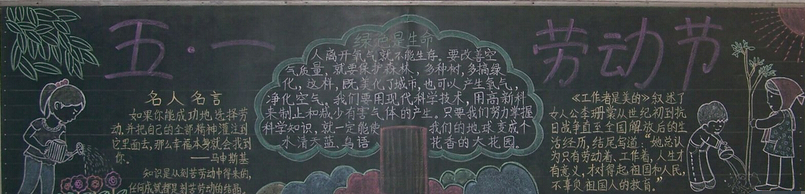 五·一
劳动节
名人名言
如果你能成功地选择劳
动,并把自己的全部精神灌注到
它里面去,那么幸福本身就会找到
你。 ——乌申斯基
知识是从刻苦劳动中得来的,
任何成就都是刻苦劳动的结晶。
绿 是生命
人离开氧气就不能生存,要改善空
气质量,就要保护森林、多种树,多搞绿
化,这样,既美化了城市,也可以产生氧气,
净化空气,我们要用现代科学技术,用高新科
来制止和减少有害气体的产生,只要我们努力掌握
科学知识,就一定能使 我们的地球变成个
水清天蓝,鸟语 花香的大花园。
《工作者是美的》叙述了
女人公李珊紫从世纪初到抗
日战争直至全国解放后的生
活经历,结尾写道:“她总认
为只有劳动着、工作着,人生才
有意义,才对得起祖国和人民,
不辜负祖国人的教育。”